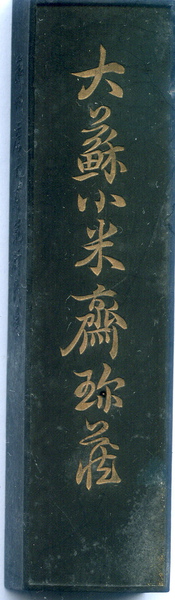 大蘇小米齋珎藏